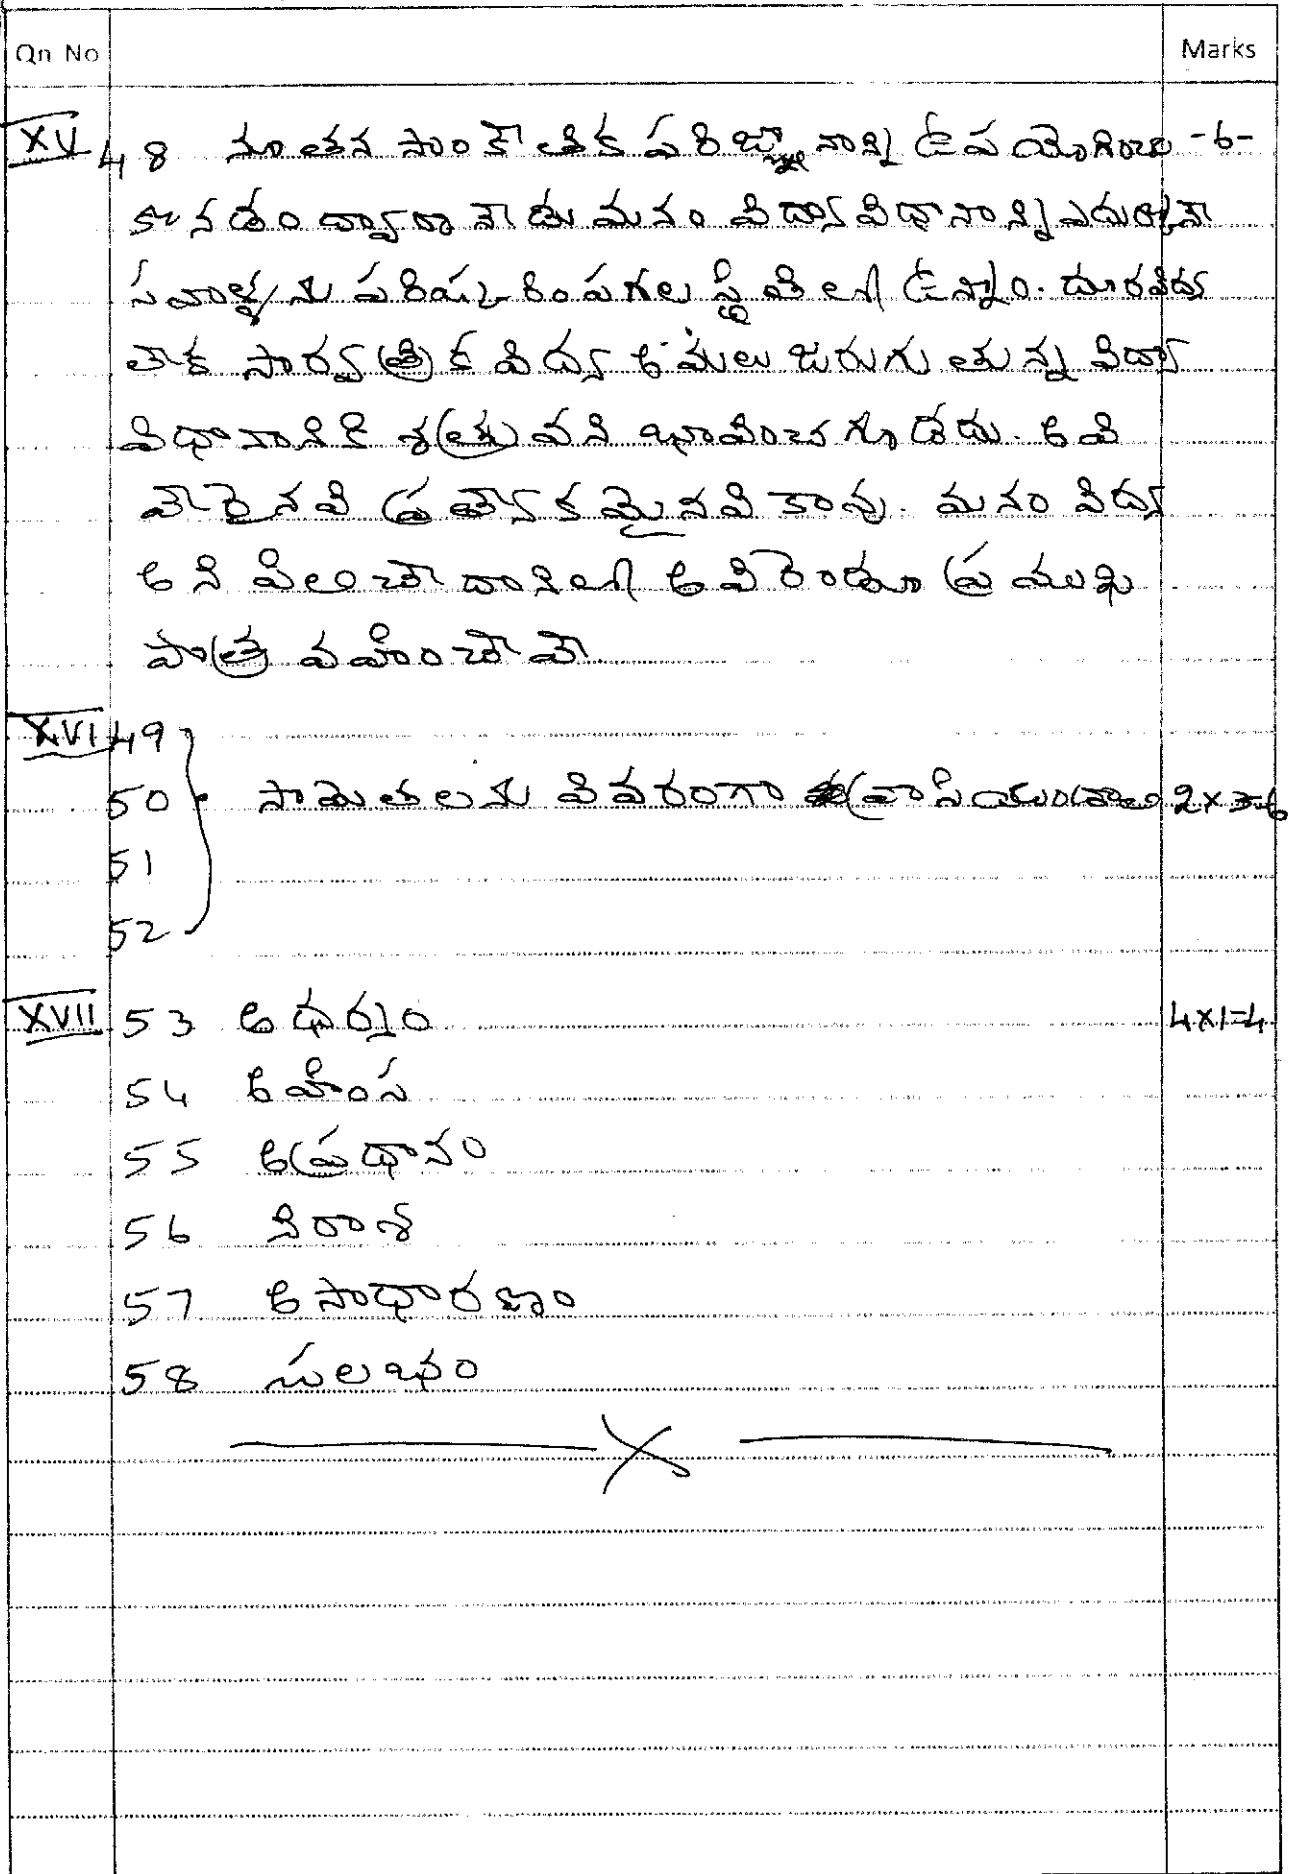 Qn No Marks
XV 48 నూతన సాంకేతిక పరిజ్ఞానాన్ని ఉపయోగించు -6-
కొనడం ద్వారా నేడు మనం విద్యావిధానాన్ని ఎదుర్కొనే
సవాళ్ళను పరిష్కరింపగల స్థితిలో ఉన్నాం. దూరవిద్య
లేక సార్వత్రిక విద్య అమలు జరుగుతున్న విద్యా
విధానానికి శత్రువని భావించగూడదు. అవి
వేరైనవి ప్రత్యేకమైనవి కావు. మనం విద్య
అని పిలిచే దానిలో అవి రెండూ ప్రముఖ
పాత్ర వహించేవే
XVI 49
50 సామెతలను వివరంగా వ్రాసియుండాలి 2x3=6
51
52
XVII 53 అధర్మం 4x1=4
54 అహింస
55 అప్రధానం
56 నిరాశ
57 అసాధారణం
58 సులభం